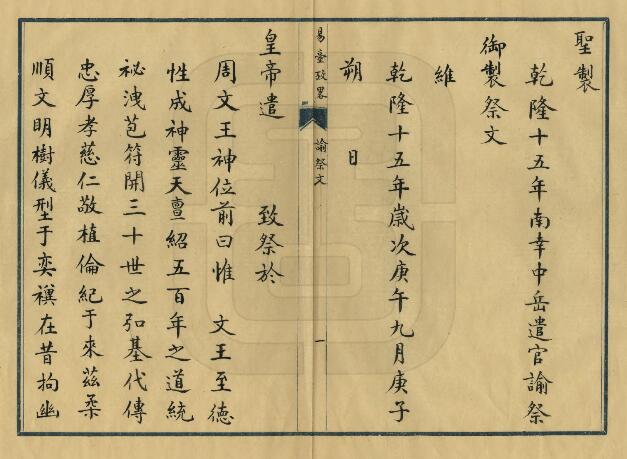 聖製
乾隆十五年南幸中岳遣官諭祭
御製祭文
維
乾隆十五年歲次庚午九月庚子
朔 日
易臺攷畧 諭祭文 一
皇帝遣 致祭於
周文王神位前曰惟 文王至德
性成神靈天亶紹五百年之道統
祕洩苞符開三十世之弘基代傳
忠厚孝慈仁敬植倫紀于來茲柔
順文明樹儀型于奕禩在昔拘幽